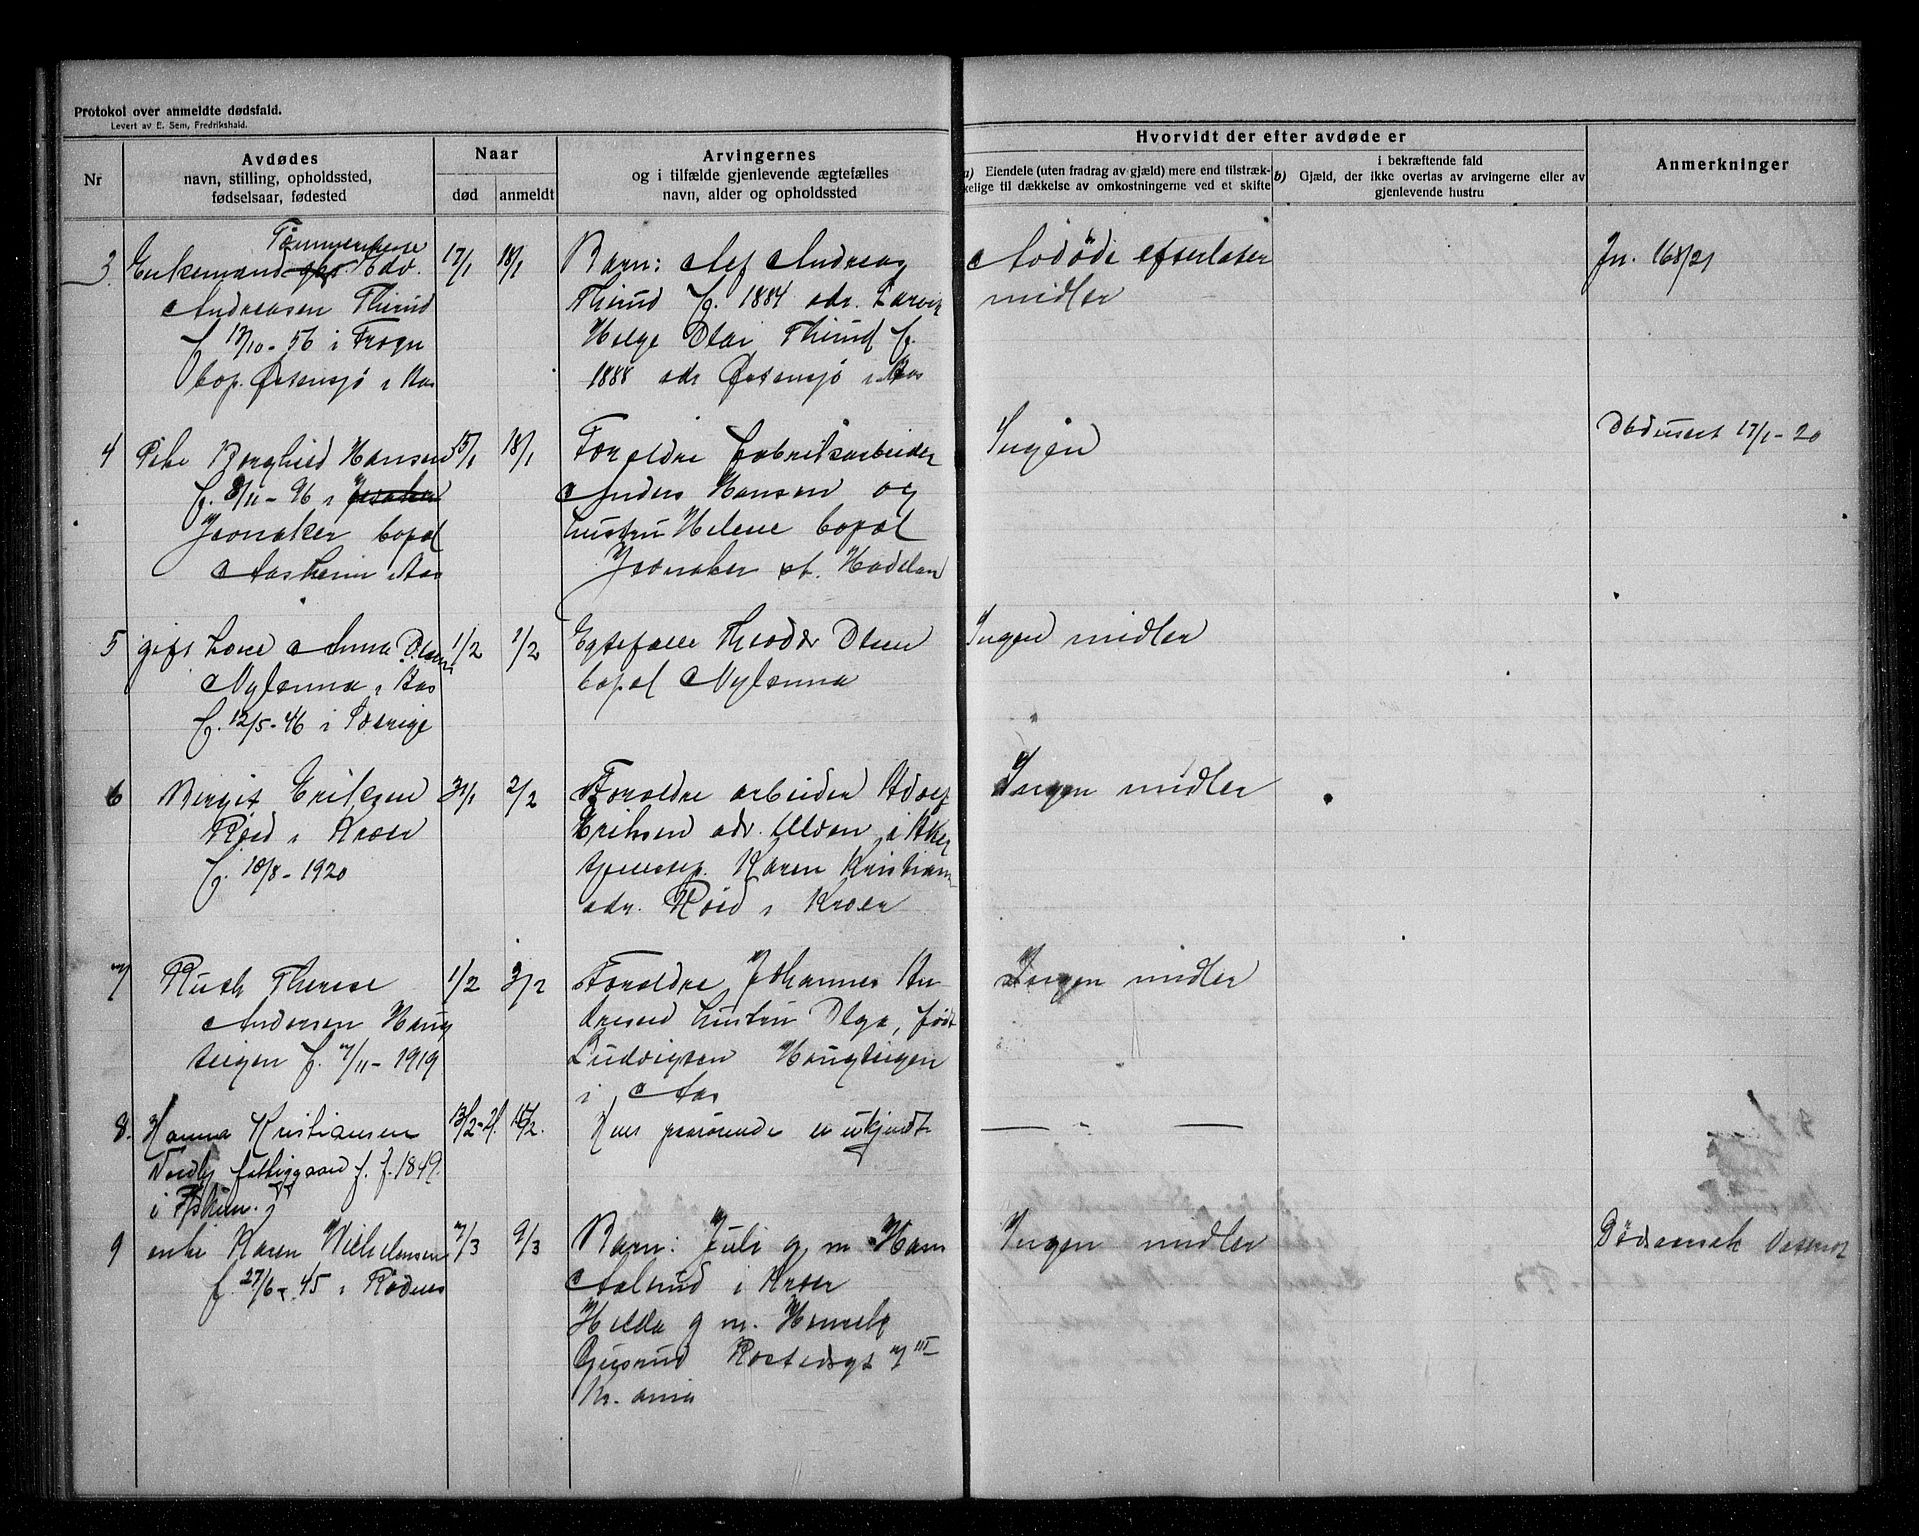 Protokol over anmeldte dødsfald.
Levert av E. Sem, Fredrikshald.
Nr
Avdødes
navn, stilling, opholdssted,
fødselsaar, fødested
Naar
død
anmeldt
Arvingernes
og i tilfælde gjenlevende ægtefælles
navn, alder og opholdssted
Hvorvidt der efter avdøde er
a) Eiendele (uten fradrag av gjæld) mere end tilstræk-
kelige til dækkelse av omkostningerne ved et skifte
i bekræftende fald
b) Gjæld, der ikke overtas av arvingerne eller av
gjenlevende hustru
Anmerkninger
3.
Enkemand Edv.
Andreasen Thirud
f. 17/10-56 i Frogn
bop. Østensjø i Aas
17/1
18/1
Barn: Alf Andreas
Thirud f. 1884 adr. Larvik
Helge Olai Thirud f.
1888 adr Østensjø i Aas
Avdøde efterlater
midler
Jn. 168/21
4
Pike Borghild Hansen
f. 8/11-96 i
Jevnaker bopæl
Aasheim i Aas
15/1
18/1
Forældre fabrikarbeider
Anders Hansen og
hustru Helene bopæl
Jevnaker st. Hadelan
Ingen
Dødsattest 17/1-20
5
gift Love Anna Olsen
Nylænna i Aas
f. 12/5-46 i Sverige
1/2
1/2
Egtefælle Theodor Olsen
bopæl Nylænna
Ingen midler
6
Birgit Eriksen
Røed i Kroer
f. 18/8-1920
31/1
2/2
Forældre arbeider Adolf
Eriksen adr. Alden i Aker
tjenestep. Karen Kristians
adr. Røed i Kroer
Ingen midler
7
Ruth Therese
Andersen Haug
teigen f. 7/11-1919
1/2
3/2
Forældre Johannes An
dresen hustru Olga, født
Ludvigsen Haugteigen
i Aas
Ingen midler
8.
Hanna Kristiansen
Nordby fattiggaard f. f. 1849.
i Askim.
13/2-21.
15/2.
Hvis paarørende er ukjendt
— " —
9
enke Karen Wilhelmsen
f. 27/6-45 i Rødnes
7/3
9/3
Barn: Juli g m. Hans
Aalerud i Kroer
Hilda g m. Henrik
Gusrud Rostedsgt 7 III
Kr. ania
Ingen midler
Dødsarsak